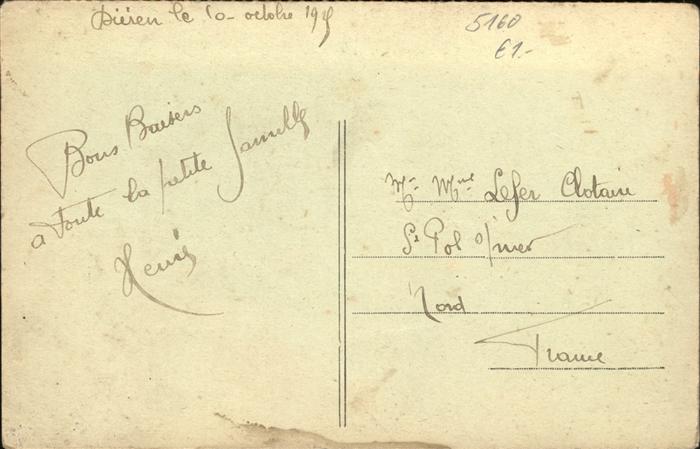 Düren le 10 - octobre 19
5160
€1.-
Bons Baisers
a toute la petite famille
Henri
Mr Mme Lefer Clotaire
St Pol s/mer
Nord
France